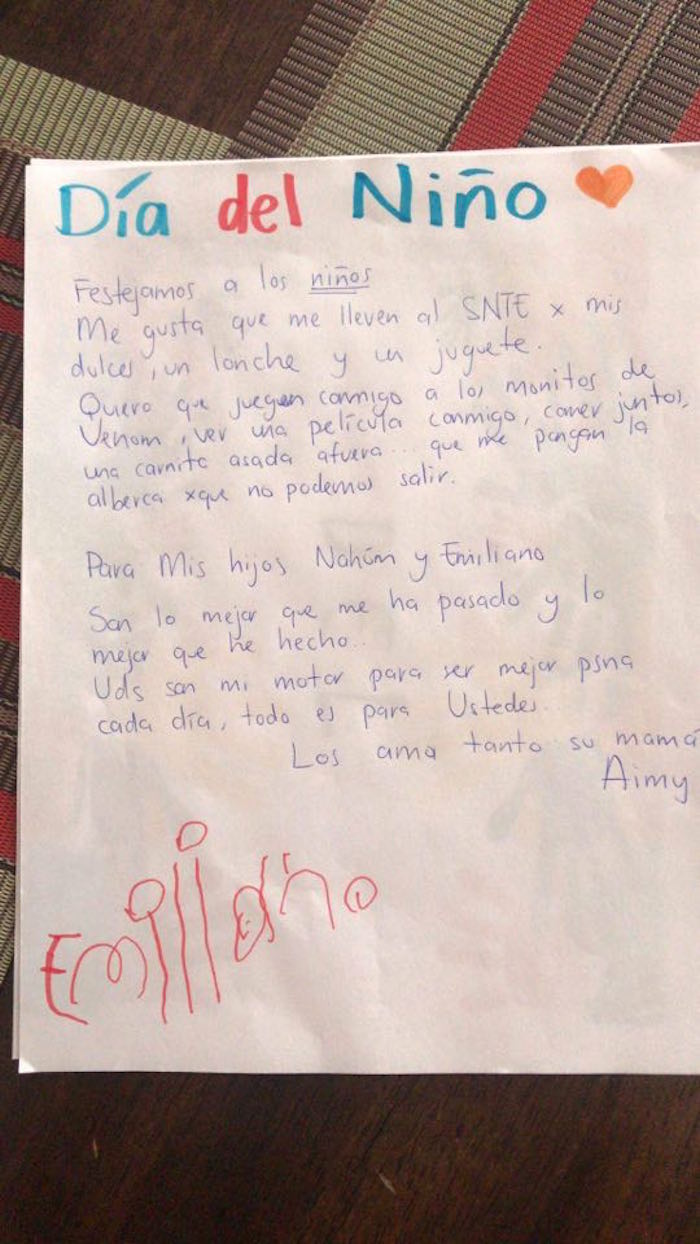 Día del Niño
Festejamos a los niños
Me gusta que me lleven al SNTE x mis
dulces, un lonche y un juguete.
Quiero que jueguen conmigo a los monitos de
Venom, ver una película conmigo, comer juntos,
una carnita asada afuera... que me pongan la
alberca xque no podemos salir.
Para Mis hijos Nahúm y Emiliano
Son lo mejor que me ha pasado y lo
mejor que he hecho..
Uds son mi motor para ser mejor psna
cada día, todo es para Ustedes..
Los ama tanto su mamá
Aimy
Emiliano